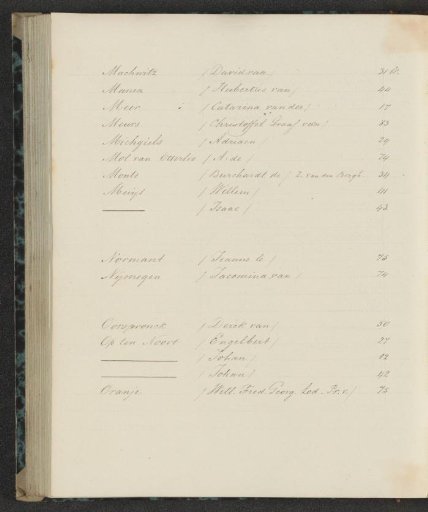 Machwitz (David van) 31 v.
Manea (Hubertus van) 44
Meer (Catarina van der) 17
Meurs (Christoffel Graaf van) 43
Michgiels (Adriaen) 29
Mol van Otterlo (A. de) 74
Monts (Burchardt de) Z. van den Bergh 34
Meurst (Willem) 41
——— (Isaac) 43
Normant (Jeanne le) 75
Nijmegen (Jacomina van) 74
Oorspronck (Derck van) 50
Op ten Noort (Engelbert) 27
——— (Johan) 12
——— (Johan) 42
Oranje (Will. Fred. Georg. Lod. Pr. v.) 75